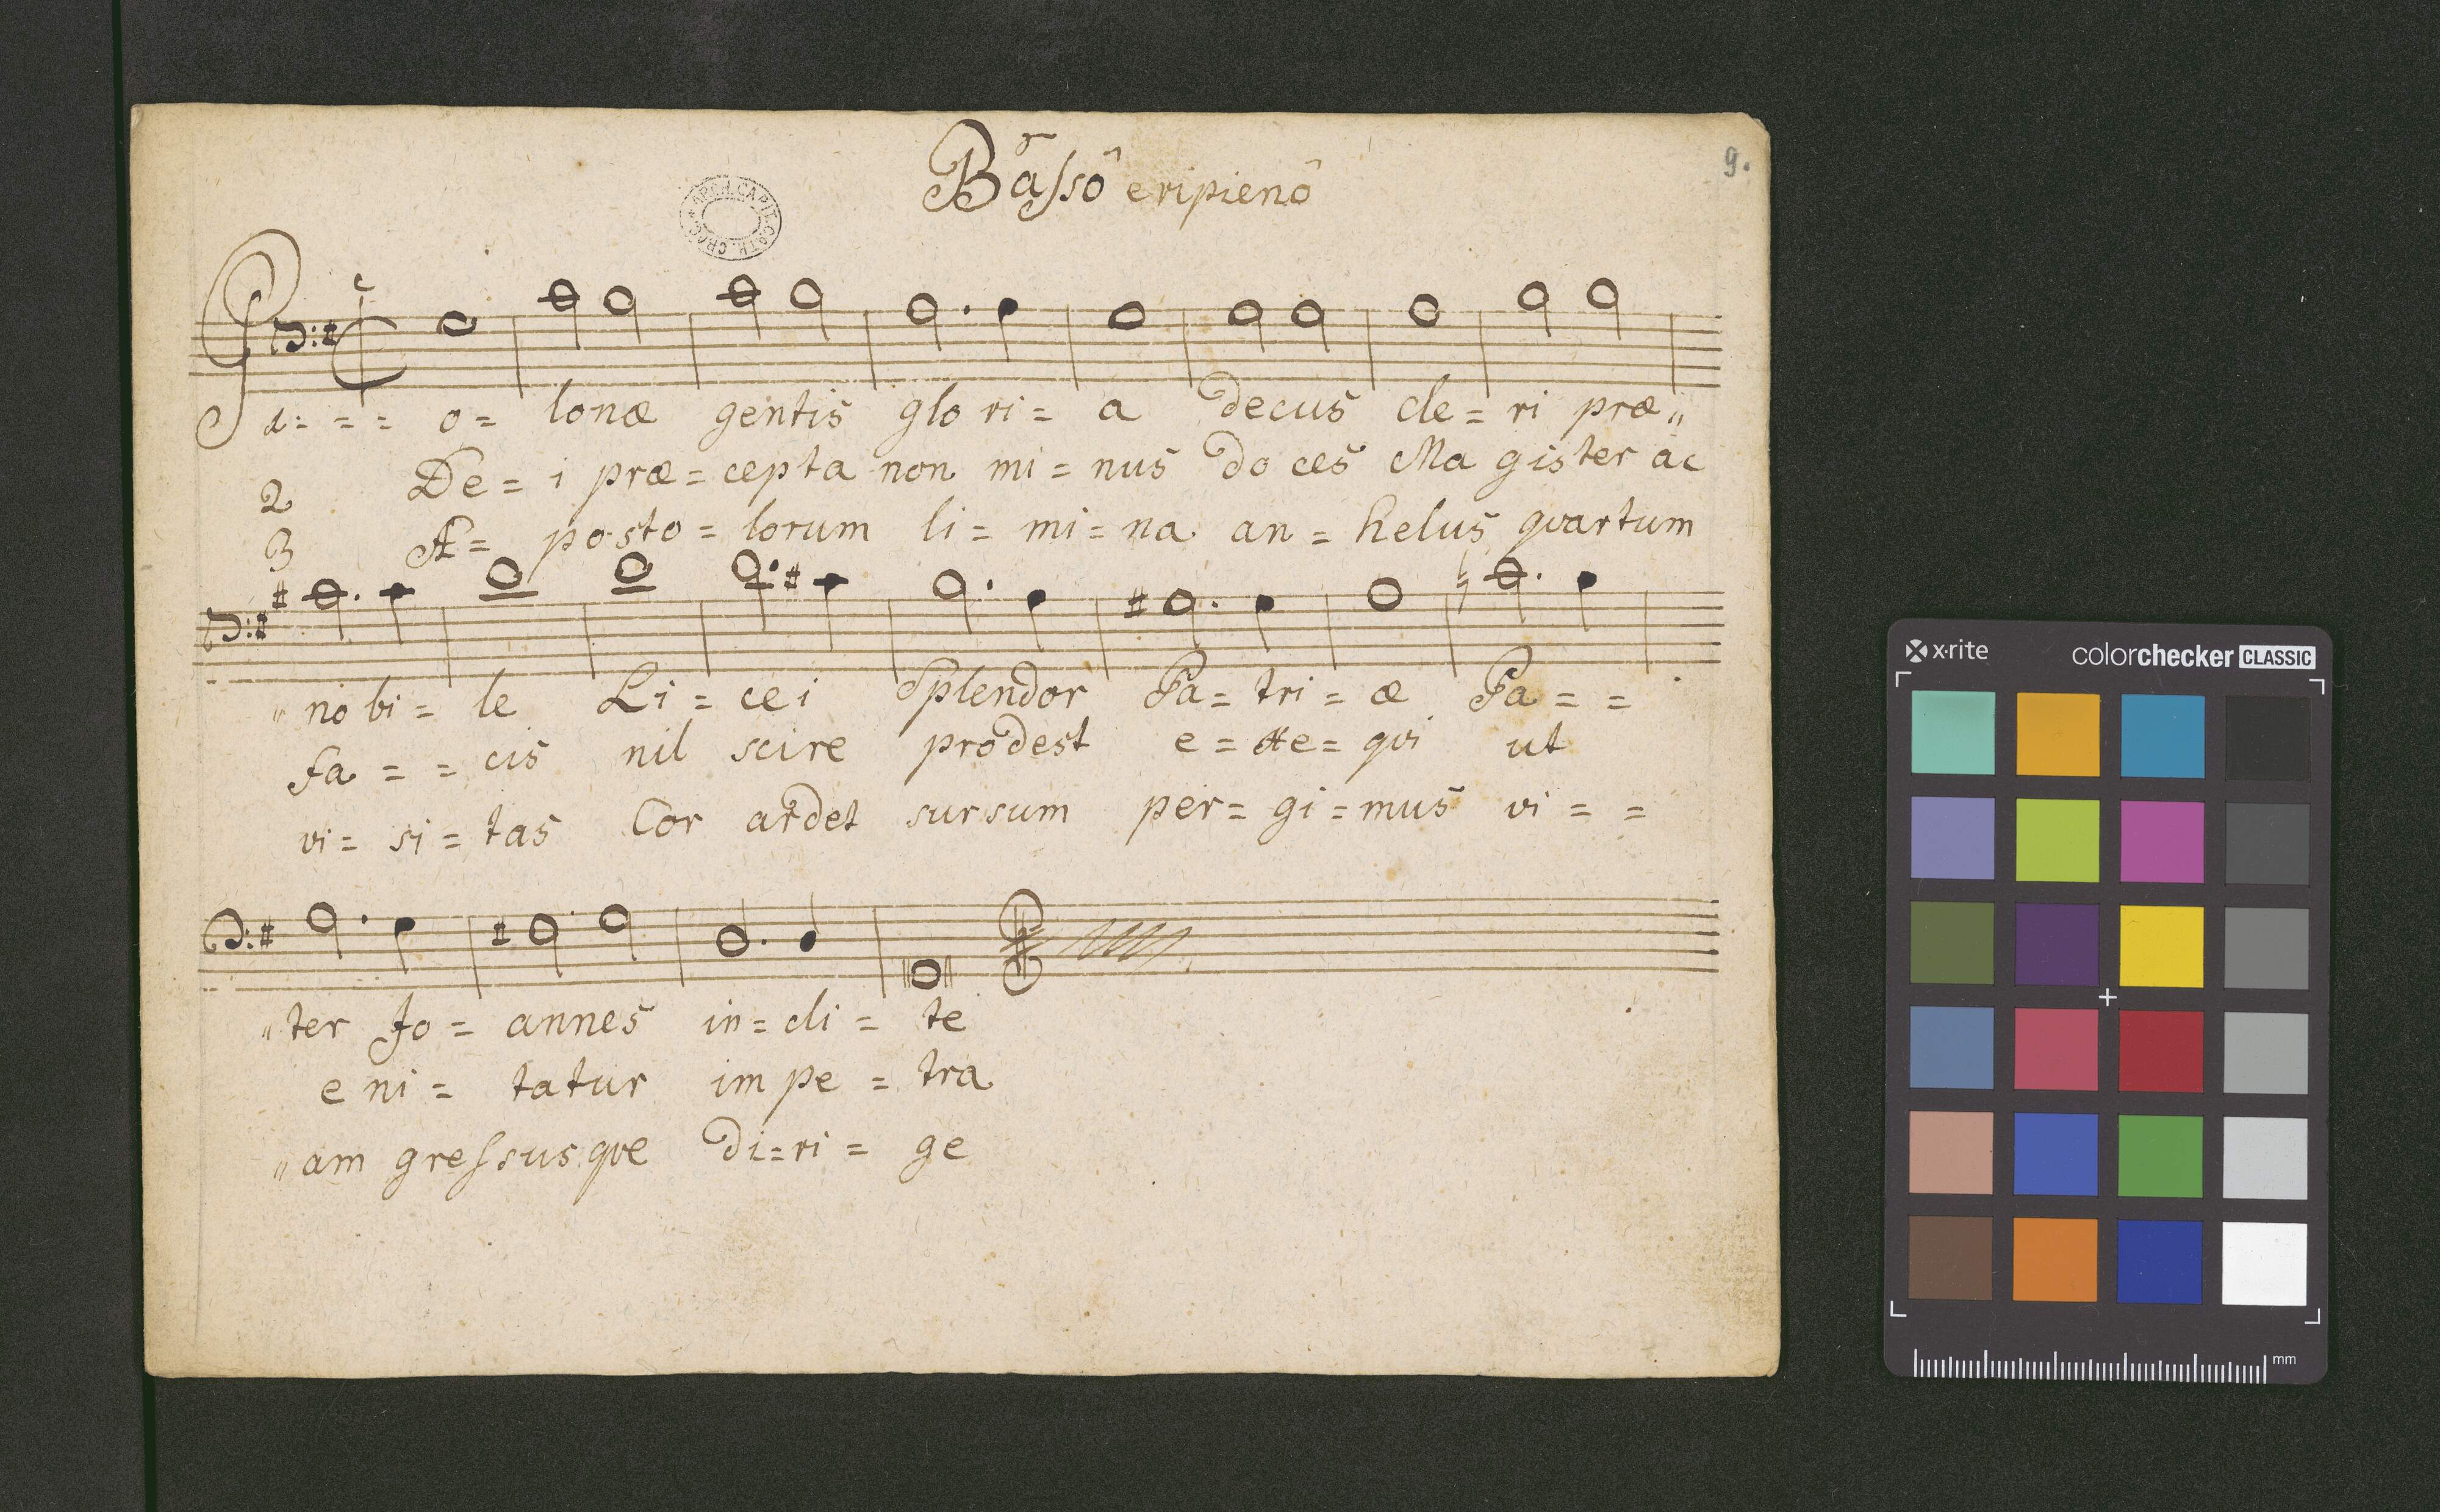 Bassô e ripienô
9.
ARCH. CAPIT. CATH. CRAC.
P a: = = o = lonæ gentis glo ri = a decus cle = ri præ„
2 De = i præ = cepta non mi = nus do ces Ma gister ac
3 A = posto = lorum li = mi = na an = helus qvartum
„ no bi = le Li = cei Splendor Pa = tri = æ Pa = =
fa = = cis nil scire prodest e = = qvi ut
vi = si = tas Cor ardet sursum per = gi = mus vi = =
„ ter Jo = annes in = cli = te
e ni = tatur im pe = tra
„ am gressus qve di = ri = ge
x·rite colorchecker CLASSIC
mm